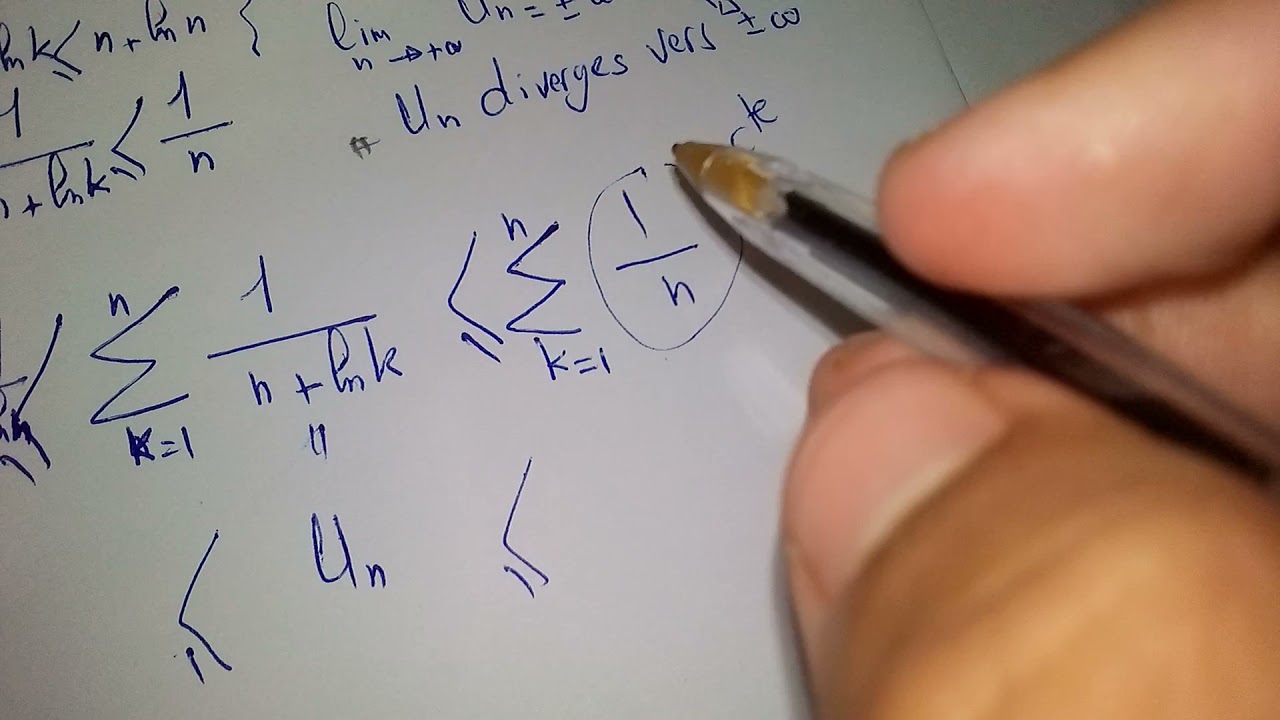 ln k ≤ n + ln n { lim Un = ± ∞
n → +∞
Un diverges vers ± ∞
1/(n + ln k) ≤ 1/n
k
≤ n Σ k=1 1/(n + ln k) ≤ n Σ k=1 1/n
"
≤ Un ≤